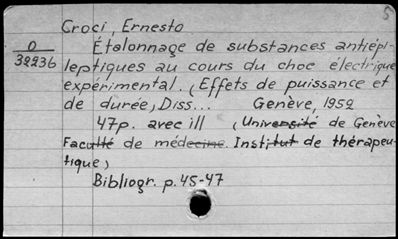 5
Croci, Ernesto
O
Étalonnage de substances antiépi-
39236
leptiques au cours du choc électrique
expérimental. (Effets de puissance et
de durée) Diss... Genève, 1952
47p. avec ill (Université de Genève
Faculté de médecine. Institut de thérapeu-
tique)
Bibliogr. p. 45-47